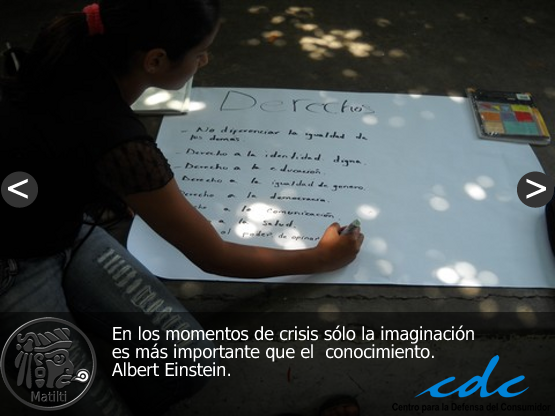 Derechos
- No diferenciar la igualdad de
los demas.
- Derecho a la identidad digna.
- Derecho a la educación.
Derecho a la igualdad de genero.
Derecho a la democracia.
a la comunicación
a la salud.
al poder de opinar
< >
En los momentos de crisis sólo la imaginación
es más importante que el conocimiento.
Albert Einstein.
Matilti
cdc
Centro para la Defensa del Consumidor